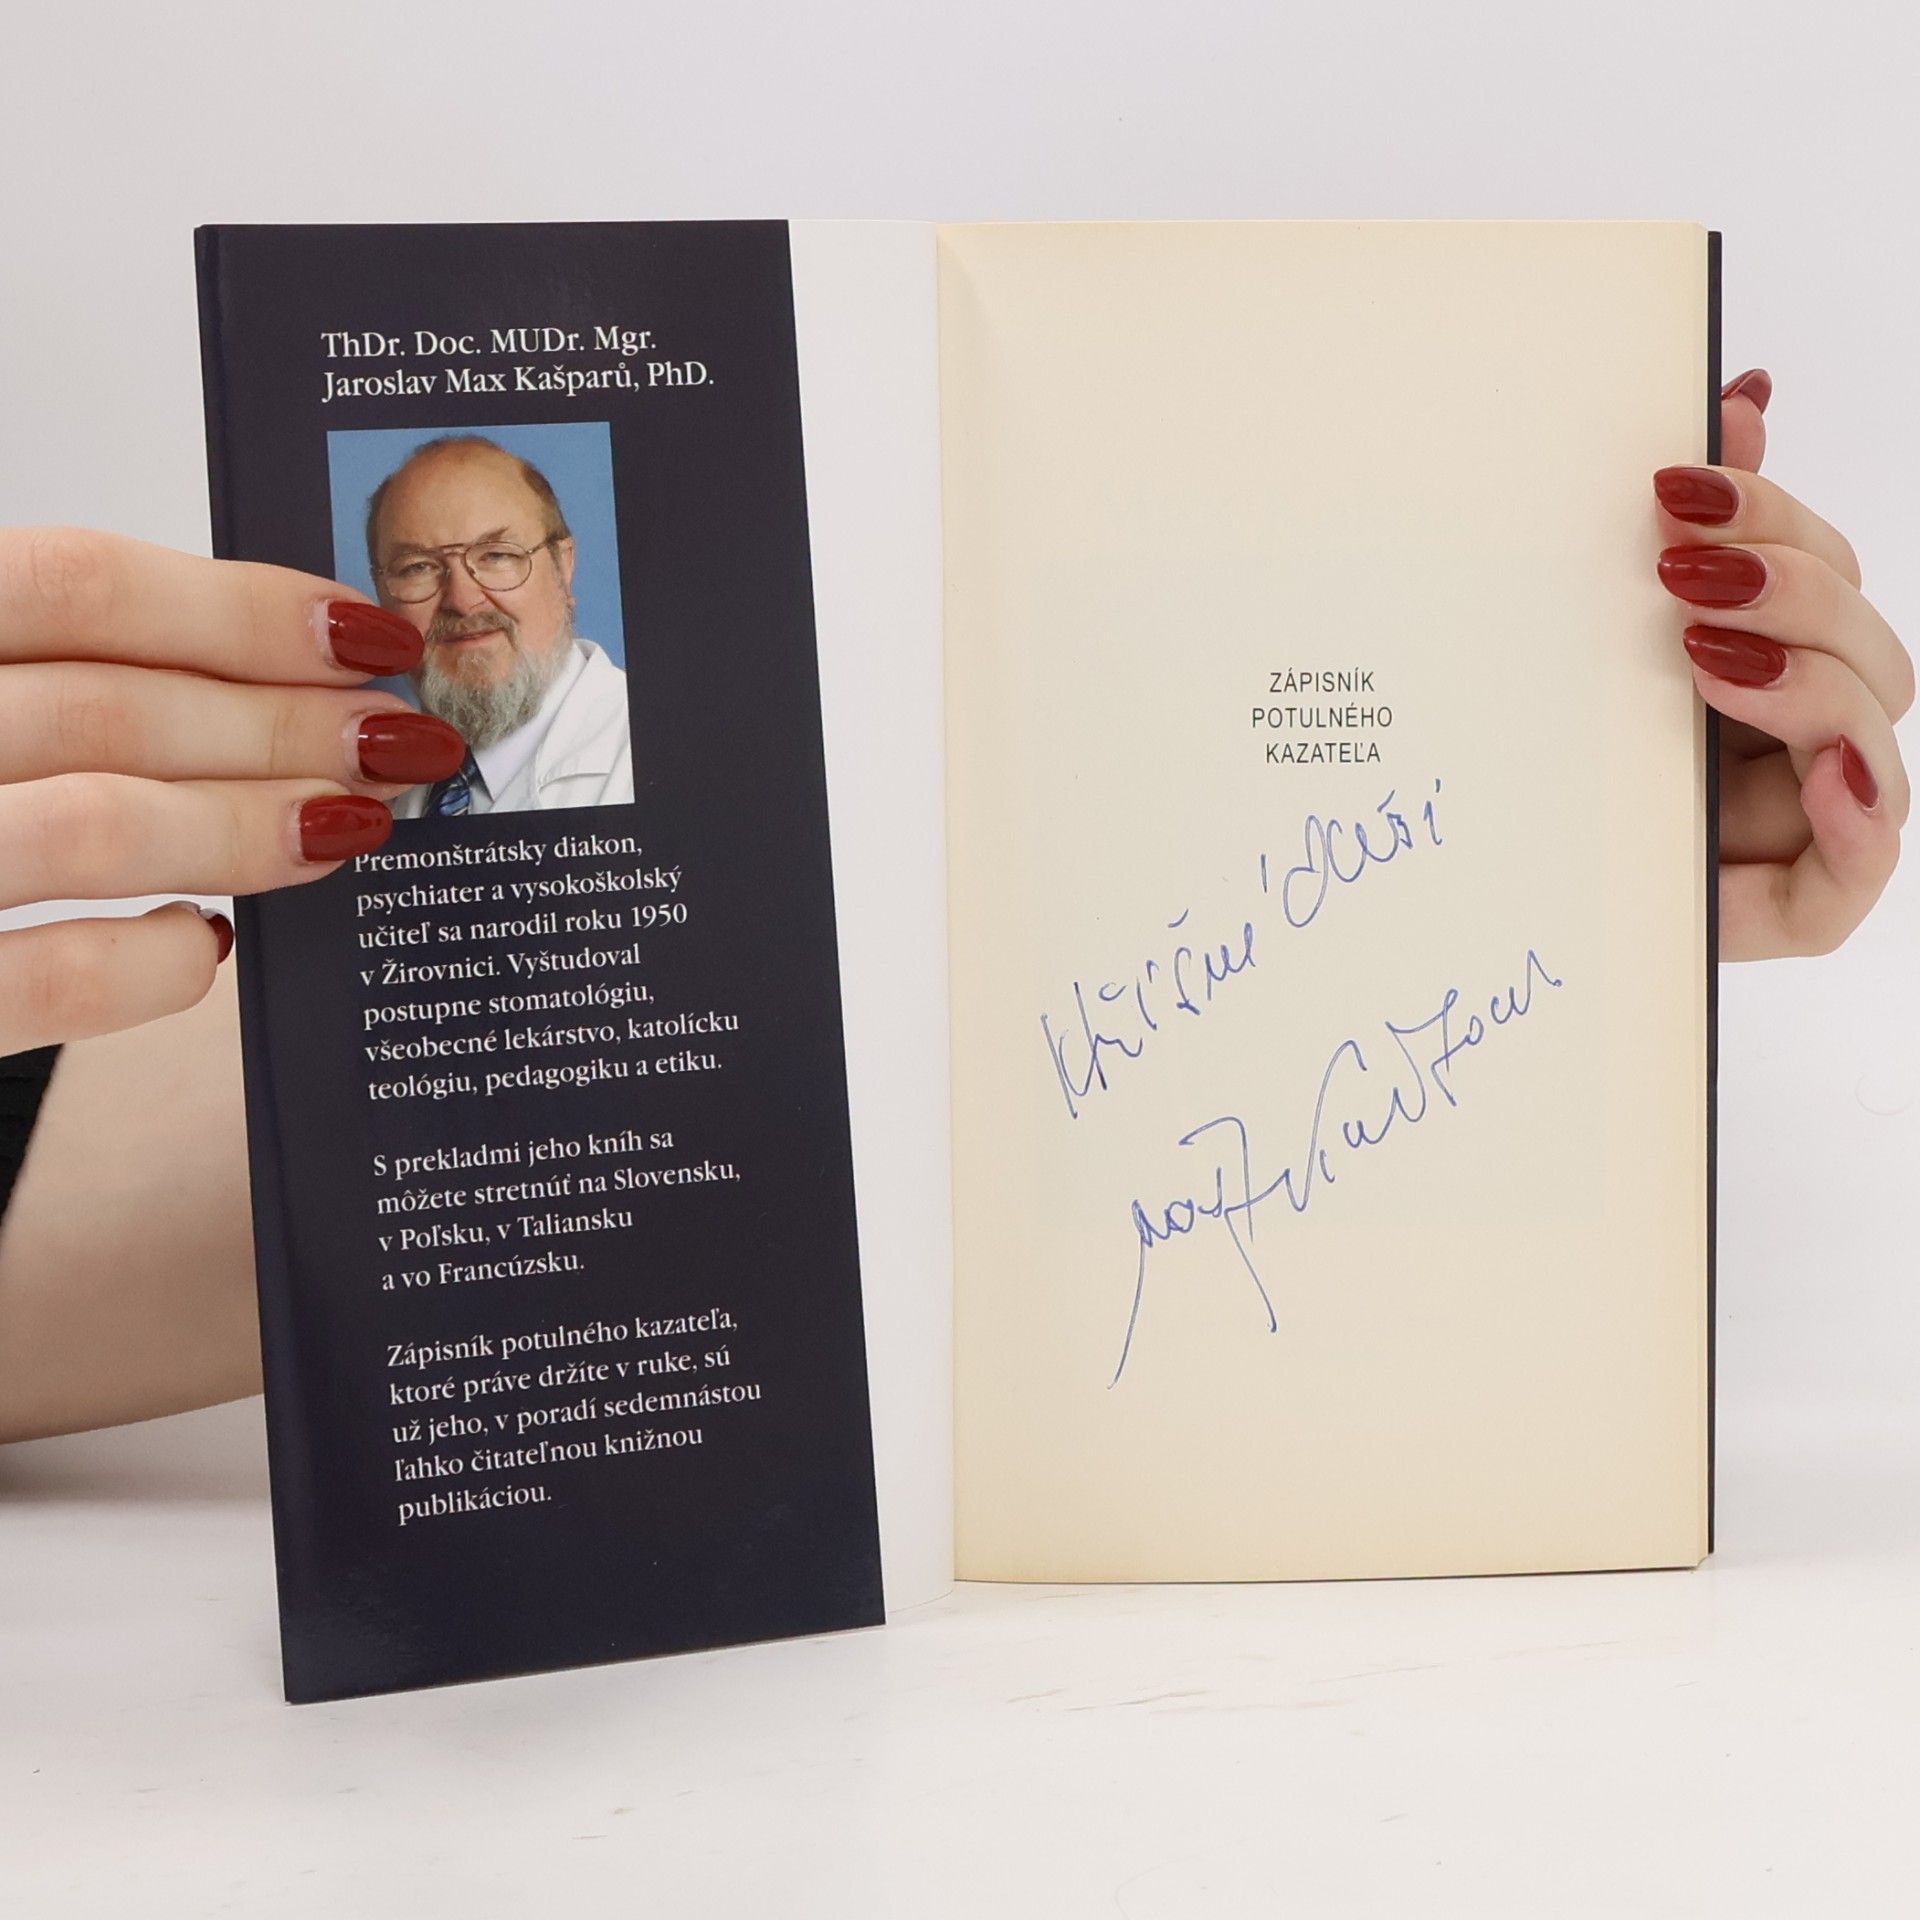 ThDr. Doc. MUDr. Mgr.
Jaroslav Max Kašparů, PhD.
Premonštrátsky diakon,
psychiater a vysokoškolský
učiteľ sa narodil roku 1950
v Žirovnici. Vyštudoval
postupne stomatológiu,
všeobecné lekárstvo, katolícku
teológiu, pedagogiku a etiku.
S prekladmi jeho kníh sa
môžete stretnúť na Slovensku,
v Poľsku, v Taliansku
a vo Francúzsku.
Zápisník potulného kazateľa,
ktoré práve držíte v ruke, sú
už jeho, v poradí sedemnástou
ľahko čitateľnou knižnou
publikáciou.
ZÁPISNÍK
POTULNÉHO
KAZATEĽA